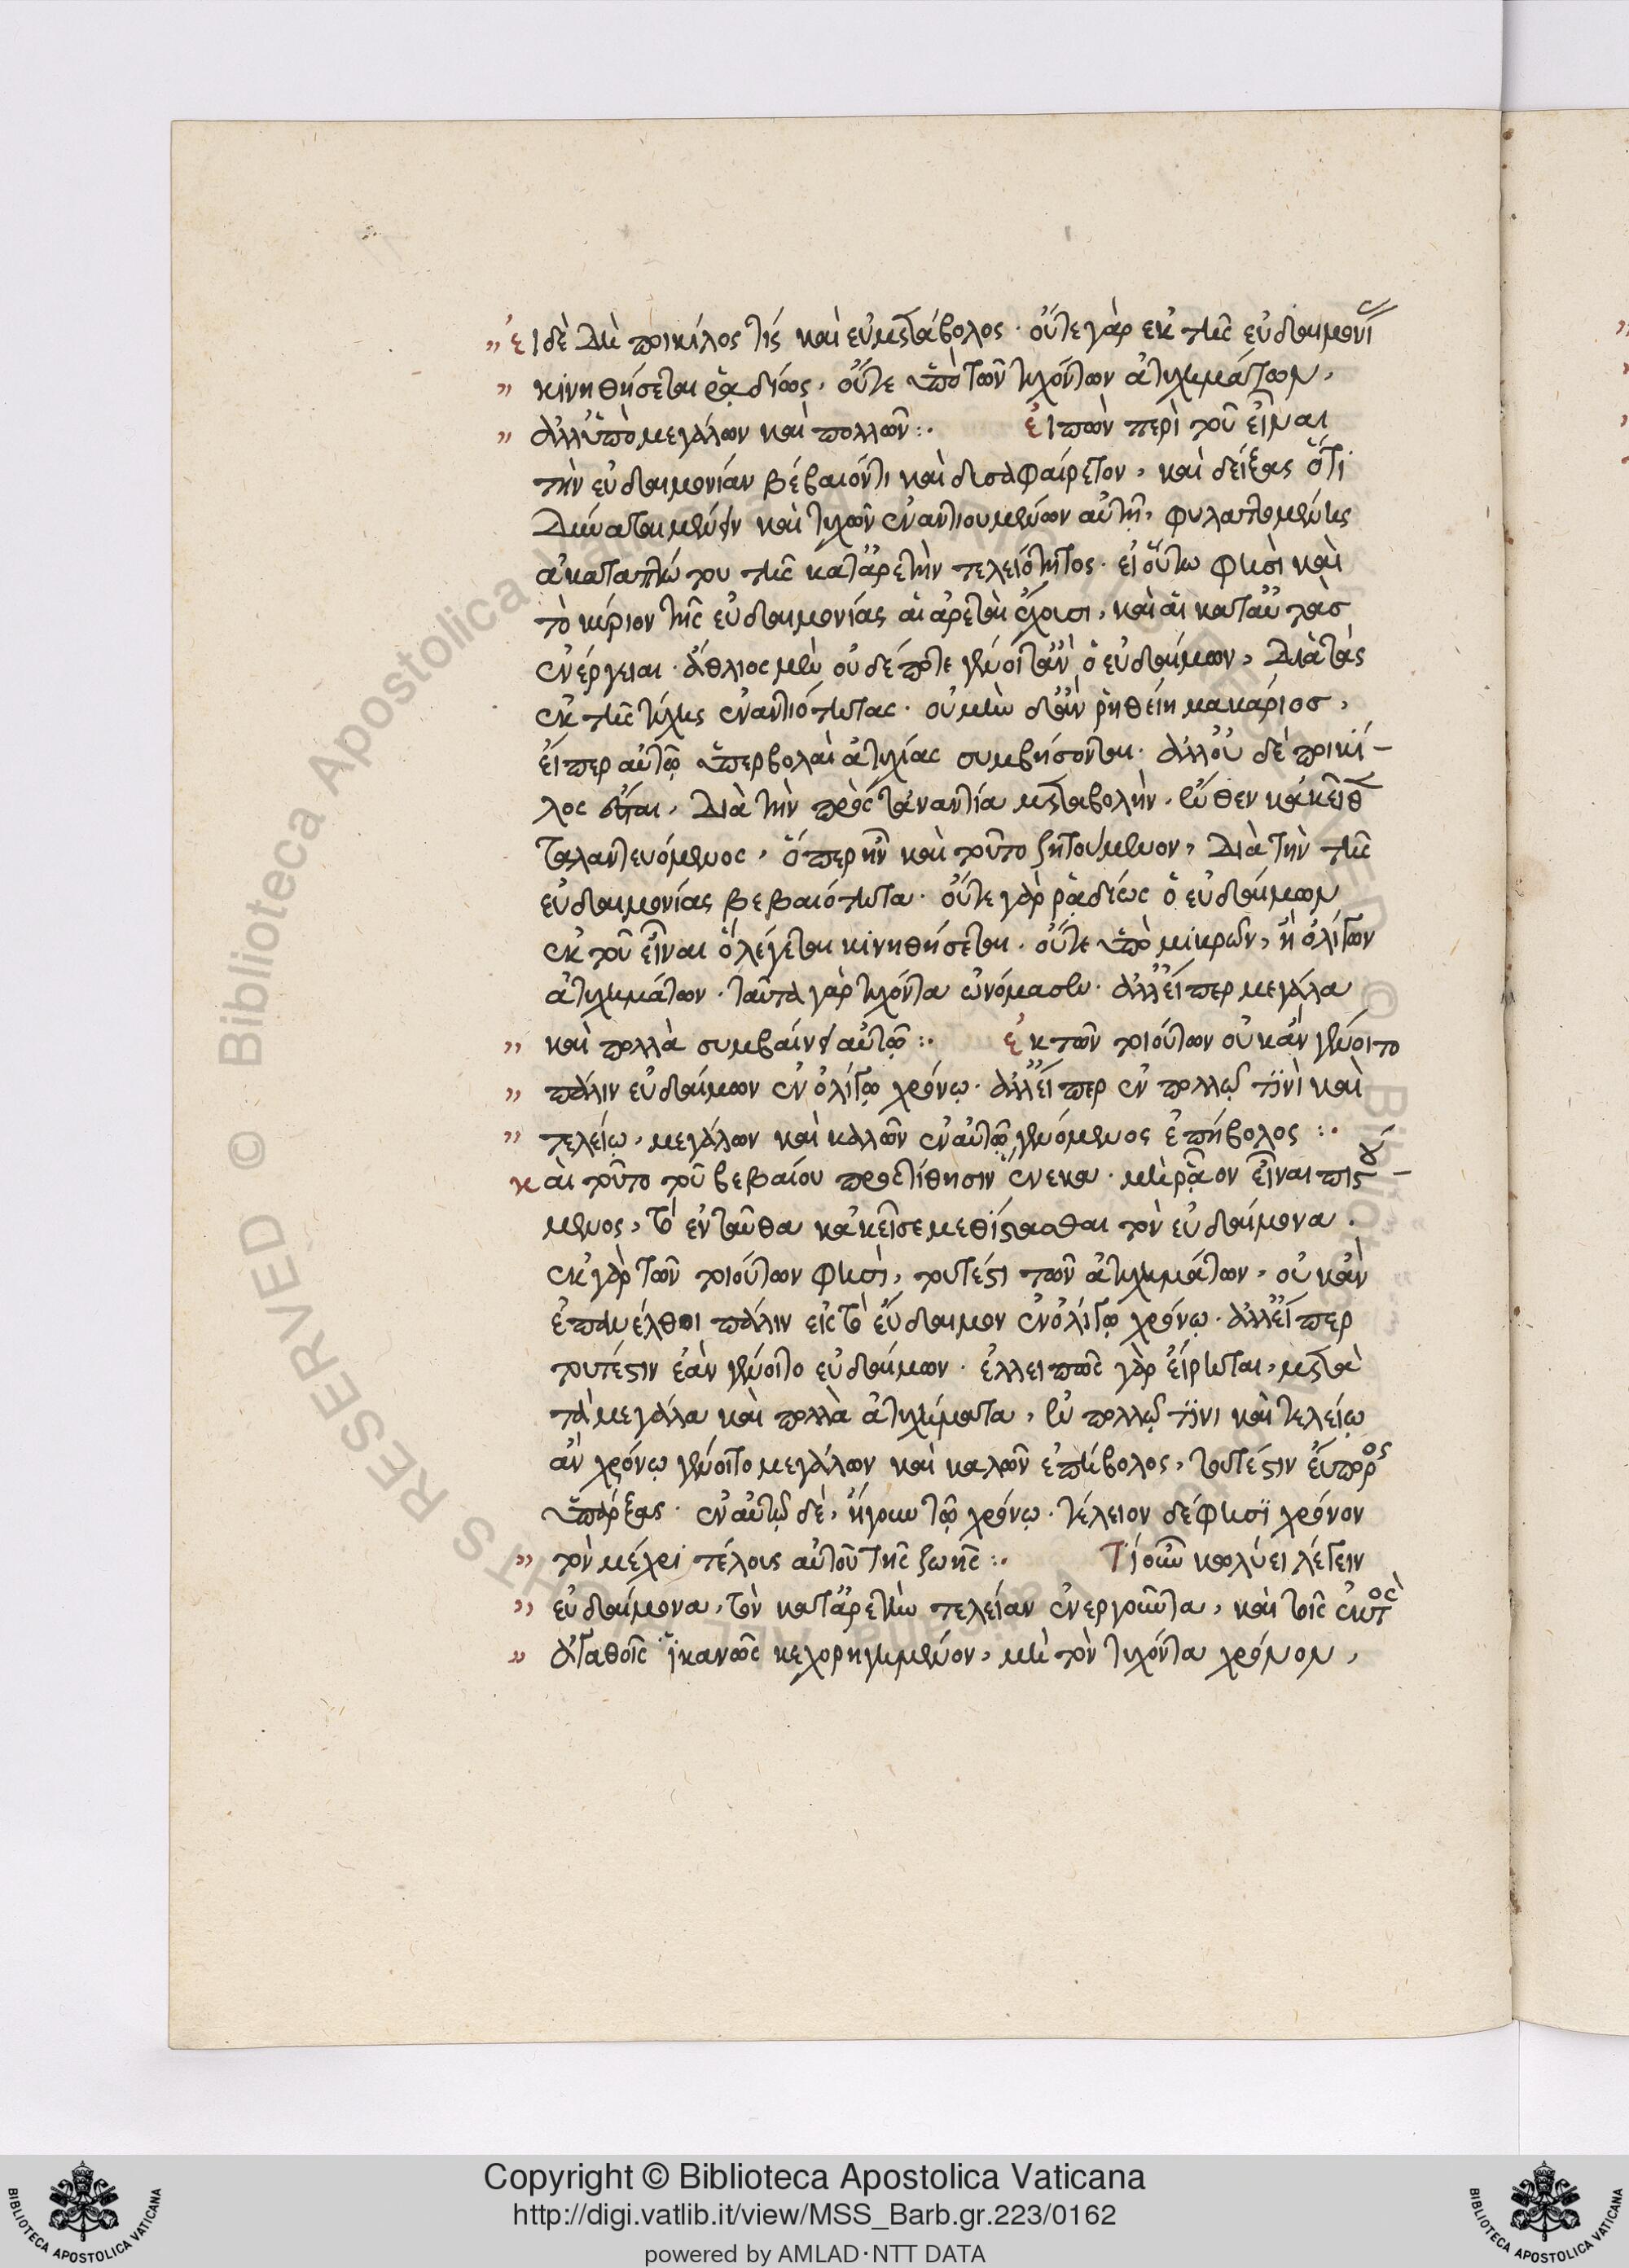 εἰ δὲ δὴ ποικίλος τίς καὶ εὐμετάβολος· οὔτε γὰρ ἐκ τῆς εὐδαιμονίας
κινηθήσεται ῥᾳδίως, οὔτε ὑπὸ τῶν τυχόντων ἀτυχημάτων,
ἀλλ' ὑπὸ μεγάλων καὶ πολλῶν :. εἰπὼν περὶ τοῦ εἶναι
τὴν εὐδαιμονίαν βέβαιόν τι καὶ δυσαφαίρετον, καὶ δείξας ὅτι
δύναται μένειν καὶ τυχῶν ἐναντιουμένων αὐτῇ, φυλαττομένης
ἀκαταπτώτου τῆς κατ' ἀρετὴν τελειότητος· εἰ οὕτω φησὶ καὶ
τὸ κύριον τῆς εὐδαιμονίας αἱ ἀρεταὶ ἔχουσι, καὶ αἱ κατ' αὐτὰς
ἐνέργειαι· ἄθλιος μὲν οὐδέποτε γένοιτ' ἂν ὁ εὐδαίμων, διὰ τὰς
ἐκ τῆς τύχης ἐναντιότητας· οὐ μὴν δ' ἂν ῥηθείη μακάριος,
εἴπερ αὐτῷ ὑπερβολαὶ ἀτυχίας συμβήσονται· ἀλλ' οὐδὲ ποικί-
λος ἔσται, διὰ τὴν πρὸς τἀναντία μεταβολὴν, ἔνθεν κἀκεῖθεν
ταλαντευόμενος, ὅπερ ἦν καὶ τοῦτο ζητούμενον, διὰ τὴν τῆς
εὐδαιμονίας βεβαιότητα· οὔτε γὰρ ῥᾳδίως ὁ εὐδαίμων
ἐκ τοῦ εἶναι ὃ λέγεται κινηθήσεται· οὔτε ὑπὸ μικρῶν, ἢ ὀλίγων
ἀτυχημάτων· ταῦτα γὰρ τυχόντα ὠνόμασεν· ἀλλ' εἴπερ μεγάλα
καὶ πολλὰ συμβαίνει αὐτῷ :. ἐκ τῶν τοιούτων οὐκ ἂν γένοιτο
πάλιν εὐδαίμων ἐν ὀλίγῳ χρόνῳ· ἀλλ' εἴπερ ἐν πολλῷ τινὶ καὶ
τελείῳ, μεγάλων καὶ καλῶν ἐν αὐτῷ γενόμενος ἐπήβολος :.
καὶ τοῦτο τοῦ βεβαίου προστίθησιν ἕνεκα· μὴ ῥᾷον εἶναι πιστού-
μενος, τὸ ἐνταῦθα κἀκεῖσε μεθίστασθαι τὸν εὐδαίμονα·
ἐκ γὰρ τῶν τοιούτων φησὶ, τουτέστι τῶν ἀτυχημάτων, οὐκ ἂν
ἐπανέλθοι πάλιν εἰς τὸ εὔδαιμον ἐν ὀλίγῳ χρόνῳ· ἀλλ' εἴπερ
τουτέστιν ἐὰν γένοιτο εὐδαίμων· ἐλλειπῶς γὰρ εἴρηται, μετὰ
τὰ μεγάλα καὶ πολλὰ ἀτυχήματα, ἐν πολλῷ τινι καὶ τελείῳ
ἂν χρόνῳ γένοιτο μεγάλων καὶ καλῶν ἐπήβολος, τουτέστιν εὔπορος
ὑπάρξας· ἐν αὐτῷ δὲ, ἤγουν τῷ χρόνῳ· τέλειον δέ φησι χρόνον
τὸν μέχρι τέλους αὐτοῦ τῆς ζωῆς :. Τί οὖν κωλύει λέγειν
εὐδαίμονα, τὸν κατ' ἀρετὴν τελείαν ἐνεργοῦντα, καὶ τοῖς ἐκτὸς
ἀγαθοῖς ἱκανῶς κεχορηγημένον, μὴ τὸν τυχόντα χρόνον,
Copyright © Biblioteca Apostolica Vaticana
http://digi.vatlib.it/view/MSS_Barb.gr.223/0162
powered by AMLAD·NTT DATA